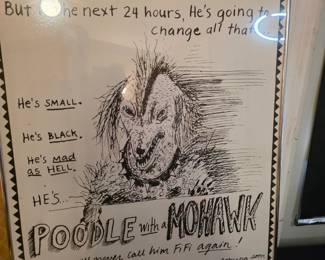 But the next 24 hours, He's going to
change all that
He's SMALL.
He's BLACK.
He's mad
as HELL.
HE'S...
POODLE with a MOHAWK
never call him FiFi again!
.com